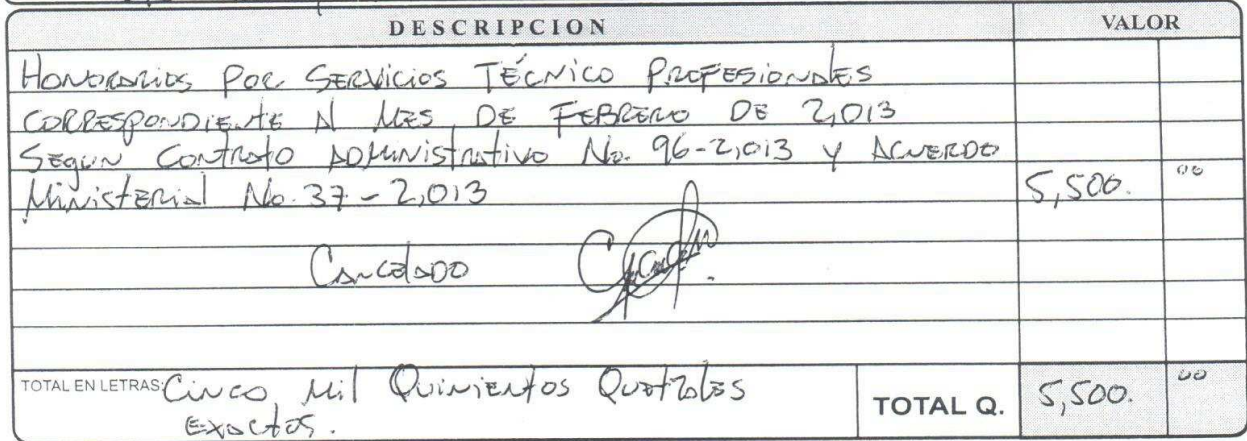 DESCRIPCION VALOR
HONORARIOS POR SERVICIOS TÉCNICO PROFESIONALES
CORRESPONDIENTE AL MES DE FEBRERO DE 2,013
SEGUN CONTRATO ADMINISTRATIVO No. 96-2,013 Y ACUERDO
MINISTERIAL No. 37-2,013 5,500. 00
CANCELADO
TOTAL EN LETRAS: CINCO MIL QUINIENTOS QUETZALES
EXACTOS.
TOTAL Q. 5,500. 00